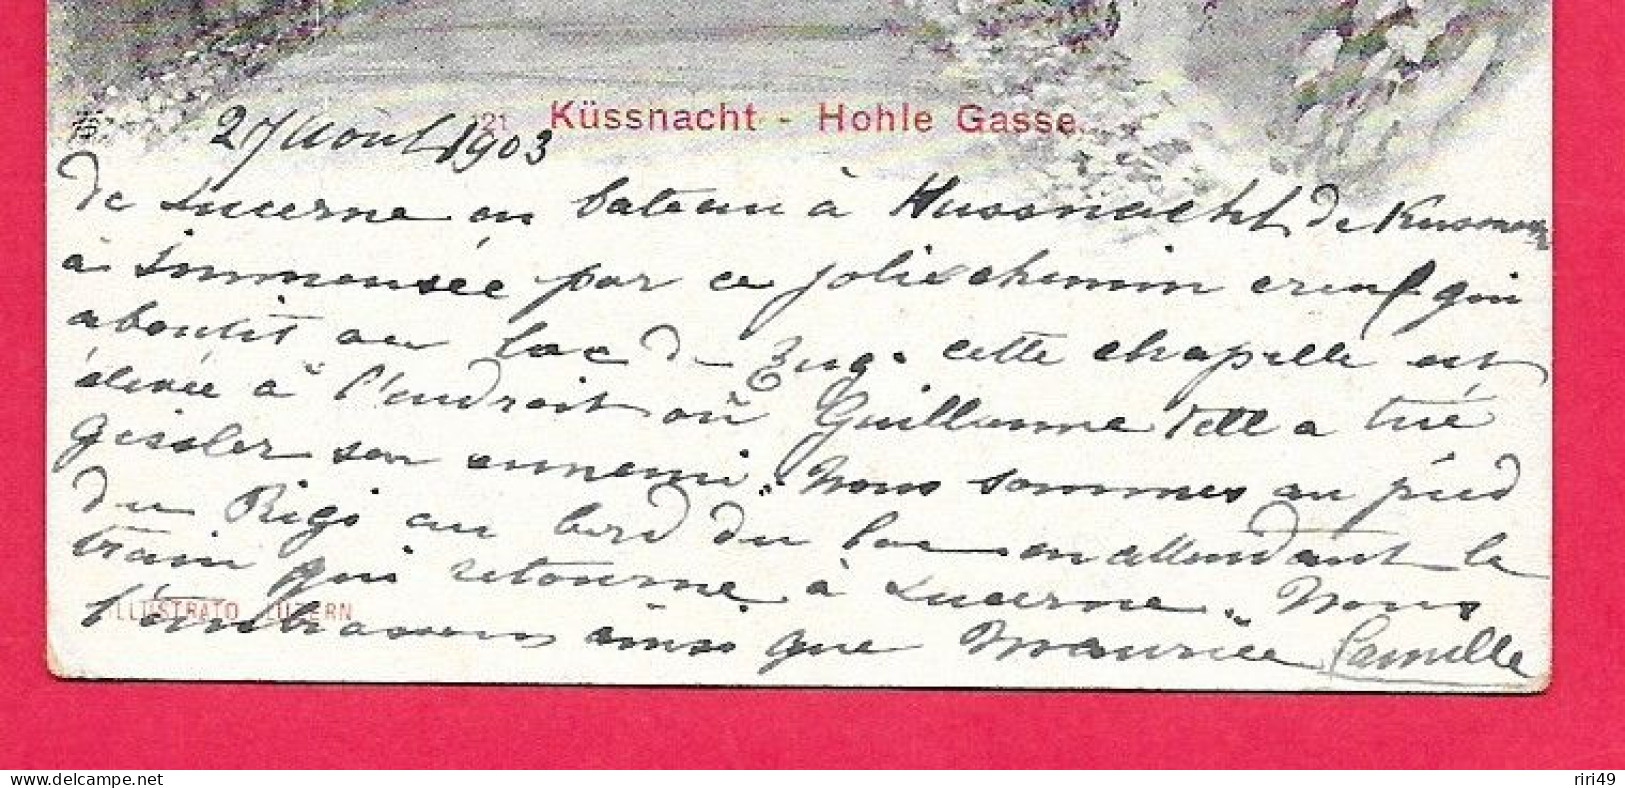 121 Küssnacht - Hohle Gasse.
27 Août 1903
de Lucerne en bateau à Kussnacht, de Kusnach
à Immensée par ce joli chemin creux qui
aboutit au lac de Zug. cette chapelle est
élevée à l'endroit où Guillaume Tell a tué
Gessler son ennemi. Nous sommes au pied
du Rigi au bord du lac en attendant le
train qui retourne à Lucerne. Nous
t'embrassons ainsi que Maurice Camille
ILLUSTRATO LUZERN
https://www.delcampe.net
riri49